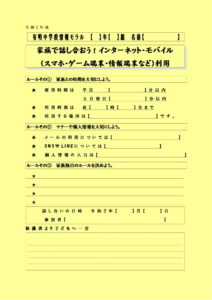 令和２年度
有明中学校情報モラル 【 】年【 】組 名前【 】
家族で話し合おう！インターネット・モバイル
（スマホ・ゲーム端末・情報端末など）利用
ルールその① 家族との時間を大切にしよう。
★ 使用時間は 平日 【 】分以内
土日祝日【 】分以内
★ 利用時間は 夜【 】時【 】分まで
★ 利用する場所は【 】です。
ルールその② マナーや個人情報を大切にしよう。
★ メールの利用については【 】
★ SNSやLINEについては【 】
★ 個人情報の入力は【 】
ルールその③ 家族独自のルールを決めよう。
★
★
★
話し合いの日時 令和２年【 】月【 】日
参加者【 】
保護者より子どもへ一言